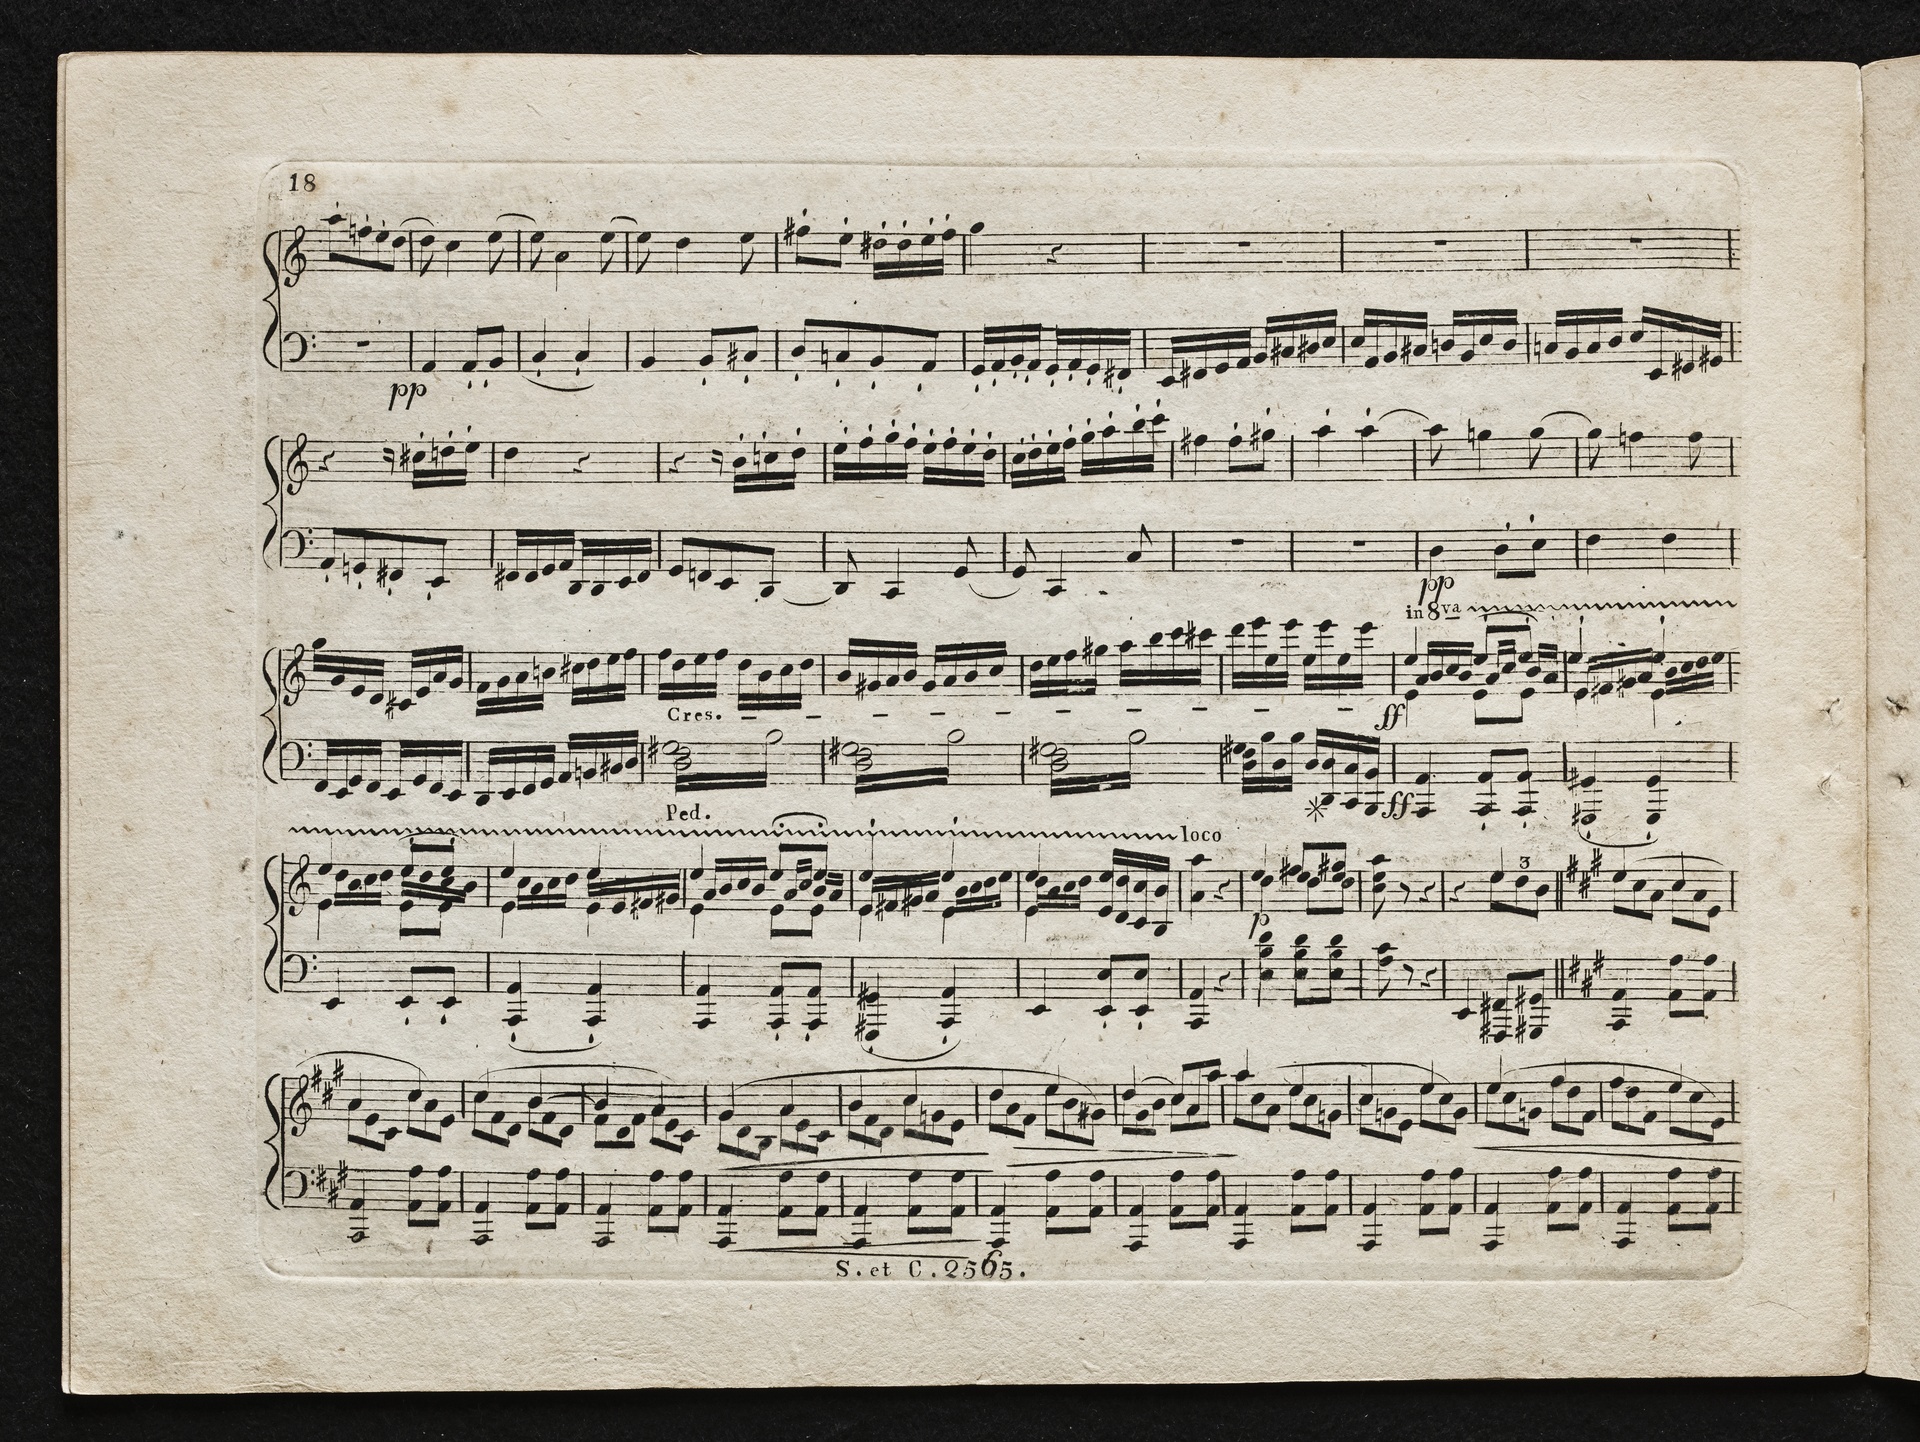 18
pp
pp
in 8va
Cres.
ff
Ped.
ff
loco
3
p
S. et C. 2565.